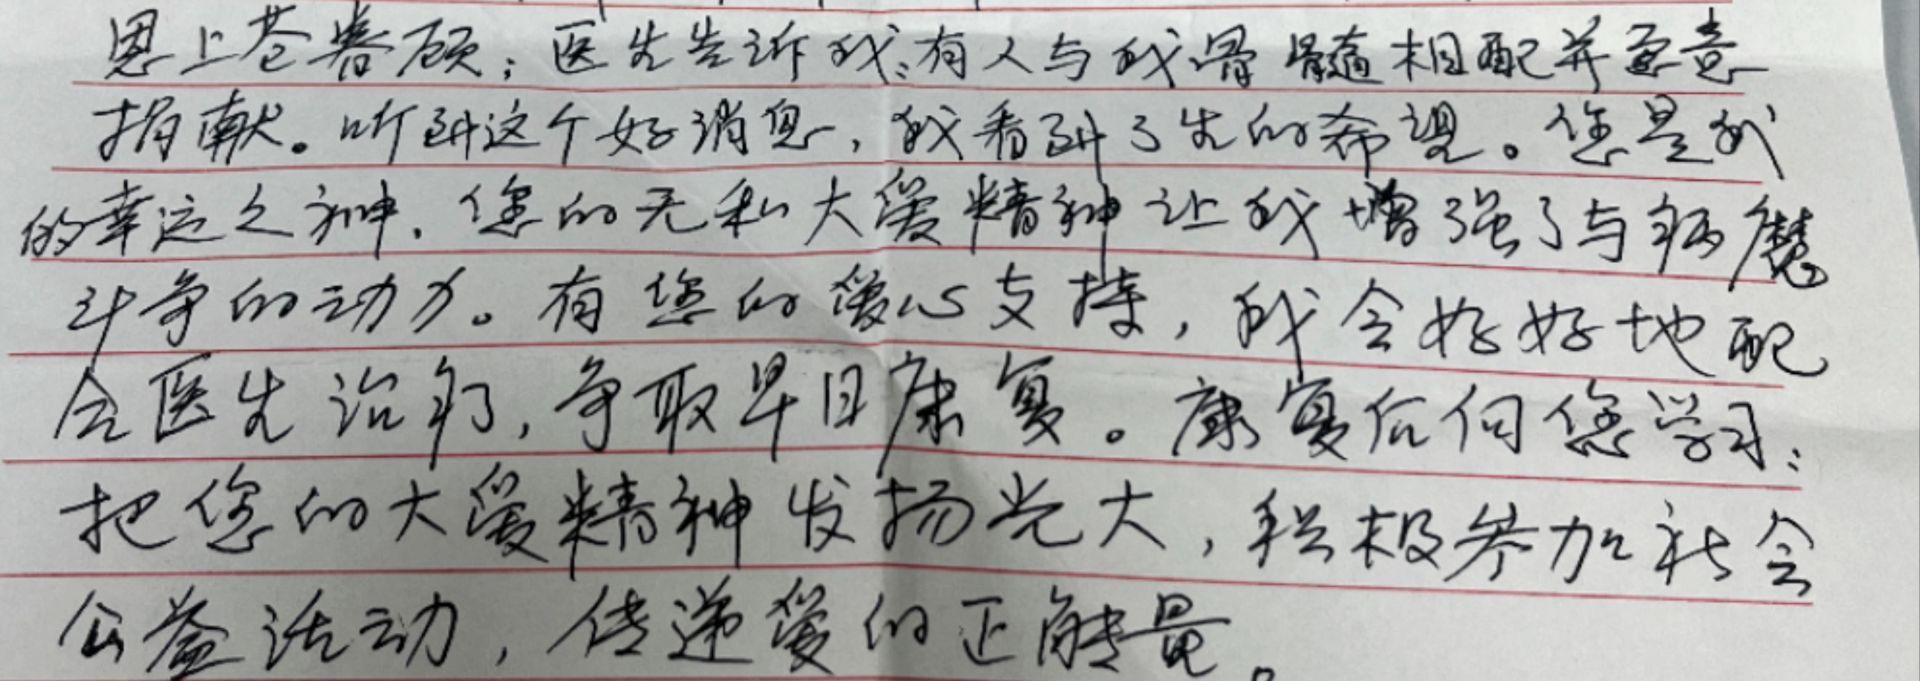 恩上苍眷顾；医生告诉我：有人与我骨髓相配并愿意
捐献。听到这个好消息，我看到了生的希望。您是我
的幸运之神，您的无私大爱精神让我增强了与病魔
斗争的动力。有您的爱心支持，我会好好地配
合医生治疗，争取早日康复。康复后向您学习：
把您的大爱精神发扬光大，积极参加社会
公益活动，传递爱的正能量。